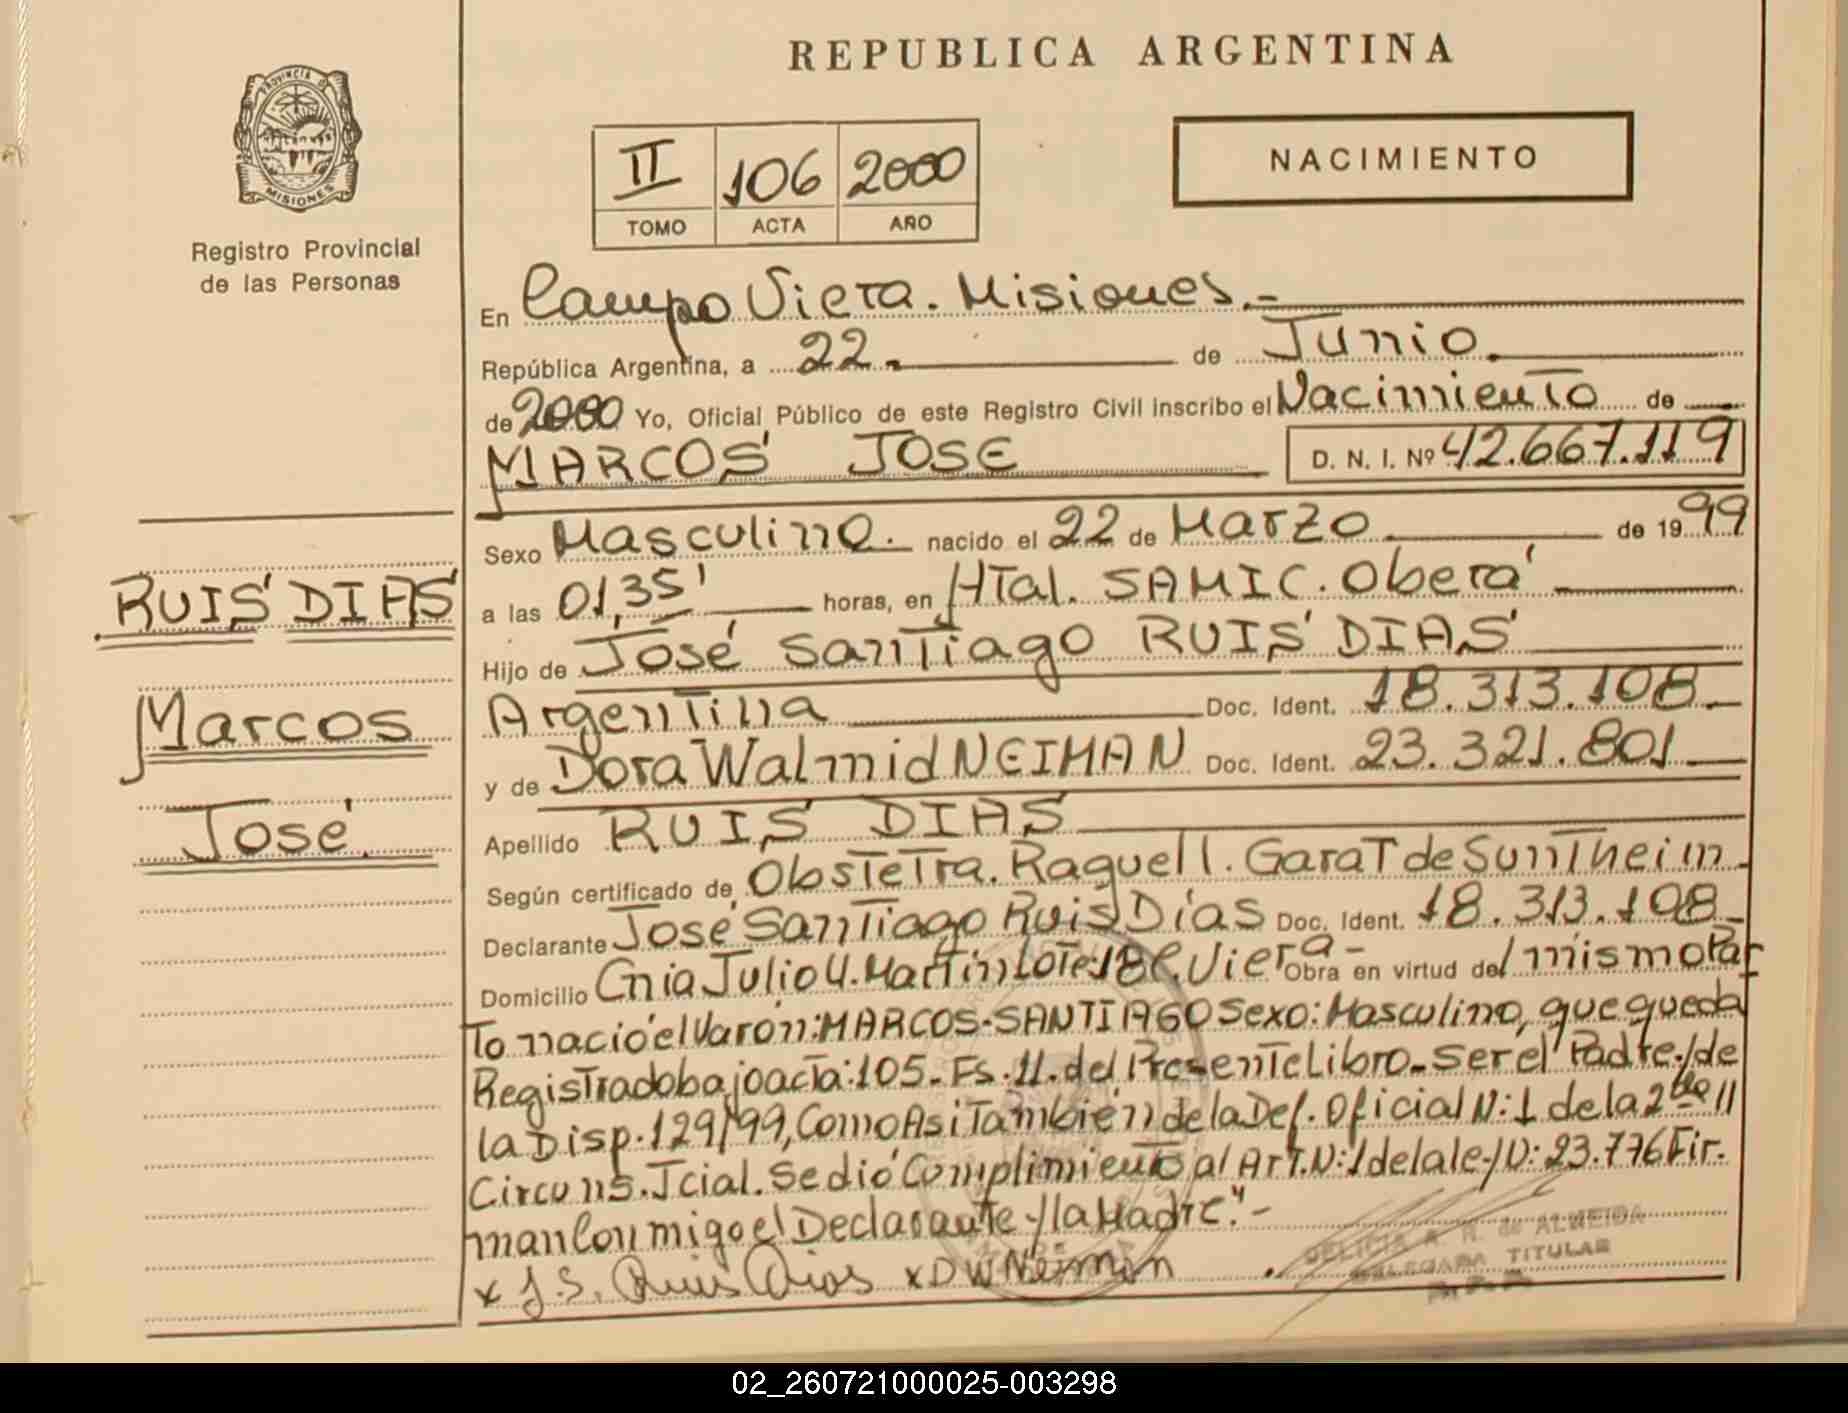 REPUBLICA ARGENTINA
PROVINCIA DE
MISIONES
Registro Provincial
de las Personas
II 106 2000
TOMO ACTA AÑO
NACIMIENTO
En Campo Viera. Misiones.-
República Argentina, a 22. de Junio.
de 2000 Yo, Oficial Público de este Registro Civil inscribo el Nacimiento de
MARCOS JOSE D. N. I. Nº 42.667.119
Sexo Masculino. nacido el 22 de Marzo de 1999
a las 01,35' horas, en Htal. SAMIC. Oberá
Hijo de José Santiago RUIS DIAS
Argentina Doc. Ident. 18.313.108.
y de Dora Walmid NEIMAN Doc. Ident. 23.321.801
Apellido RUIS DIAS
Según certificado de Obstetra. Raquel I. Garat de Suntheim.
Declarante José Santiago Ruis Dias Doc. Ident. 18.313.108
Domicilio Cnia Julio U. Martin Lote: 18 C. Viera- Obra en virtud del mismo Par
to nació el Varón: MARCOS-SANTIAGO Sexo: Masculino, que queda
Registrado bajo acta: 105- Fs. 11. del Presente Libro- Ser el Padre. / de
la Disp. 129/99, Como Asi También de la Def. Oficial N: 1 de la 2da
Circuns. Jcial. Se dió Complimiento al Art. N: 1 de la ley N: 23.776 Fir.
man Conmigo el Declarante y la Madre."-
x J.S. Ruis Dias x D W Neiman
DELICIA A. H. de ALMEIDA
DELEGADA TITULAR
RUIS DIAS
Marcos
José.
02_260721000025-003298